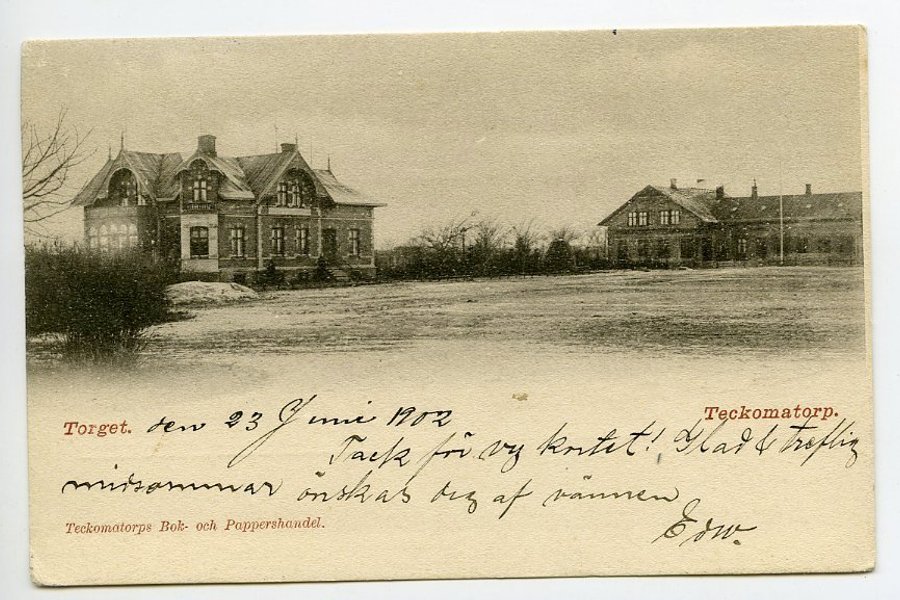 Torget. den 23 Juni 1902 Teckomatorp.
Tack för vykortet! Glad & treflig
midsommar önskas dig af vännen
Teckomatorps Bok- och Pappershandel.
Edw.